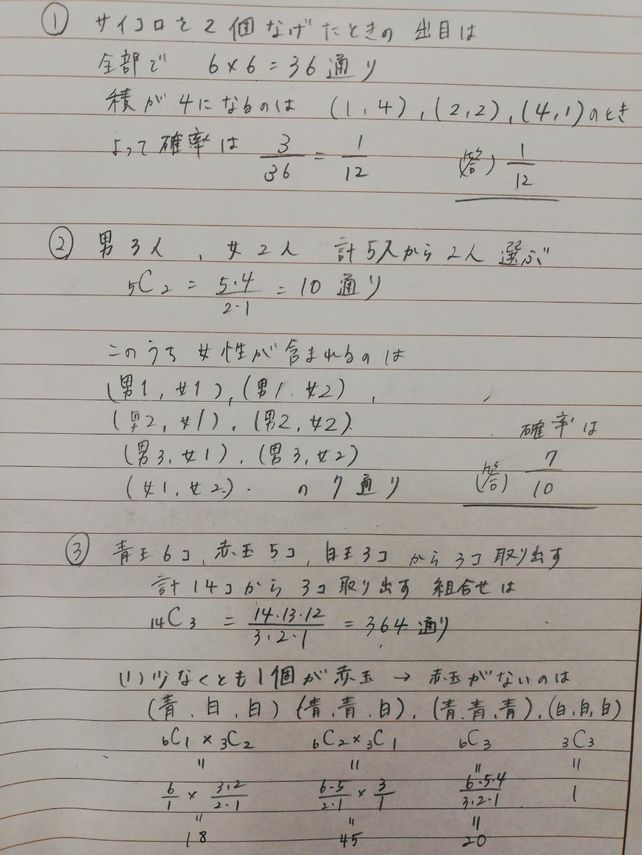 ① サイコロを2個なげたときの出目は
全部で 6×6=36通り
積が4になるのは (1,4),(2,2),(4,1)のとき
よって確率は 3/36 = 1/12 (答) 1/12
② 男3人、女2人 計5人から2人選ぶ
₅C₂ = 5・4/2・1 = 10通り
このうち女性が含まれるのは
(男1,女1),(男1,女2),
(男2,女1),(男2,女2)
(男3,女1),(男3,女2)
(女1,女2). の7通り
確率は
(答) 7/10
③ 青玉6コ,赤玉5コ,白玉3コから3コ取り出す
計14コから3コ取り出す組合せは
₁₄C₃ = 14・13・12/3・2・1 = 364通り
(1) 少なくとも1個が赤玉 → 赤玉がないのは
(青,白,白) (青,青,白),(青,青,青),(白,白,白)
₆C₁×₃C₂ ₆C₂×₃C₁ ₆C₃ ₃C₃
= = = =
6/1 × 3・2/2・1 6・5/2・1 × 3/1 6・5・4/3・2・1 1
= = =
18 45 20